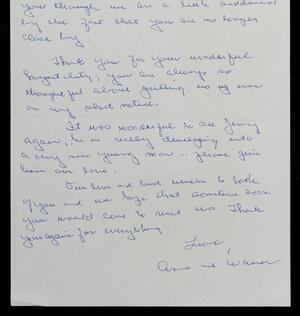 you through me are a little saddened
by the fact that you are no longer
close by.
Thank you for your wonderful
hospitality; you are always so
thoughtful about putting us up even
on very short notice.
It was wonderful to see
again, he is really developing into
a very nice young man — please give
him our love.
Our love and best wishes to both
of you and we hope that sometime soon
you would come to visit us. Thank
you again for everything.
Love,
Ann